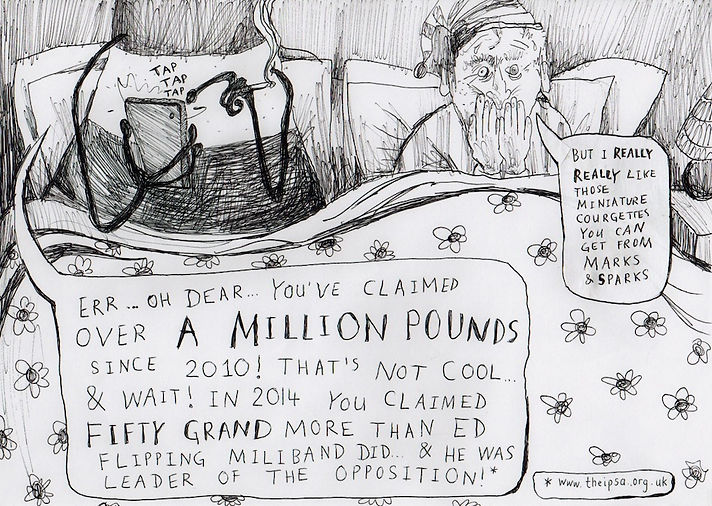 TAP
TAP
TAP
ERR... OH DEAR... YOU'VE CLAIMED
OVER A MILLION POUNDS
SINCE 2010! THAT'S NOT COOL...
& WAIT! IN 2014 YOU CLAIMED
FIFTY GRAND MORE THAN ED
FLIPPING MILIBAND DID... & HE WAS
LEADER OF THE OPPOSITION!*
BUT I REALLY
REALLY LIKE
THOSE
MINIATURE
COURGETTES
YOU CAN
GET FROM
MARKS
& SPARKS
* www.theipsa.org.uk